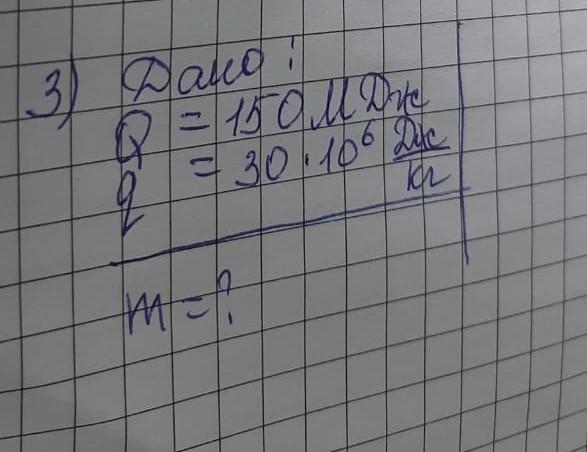 3) Дано:
Q = 150 МДж
q = 30 · 10⁶ Дж/кг
m = ?